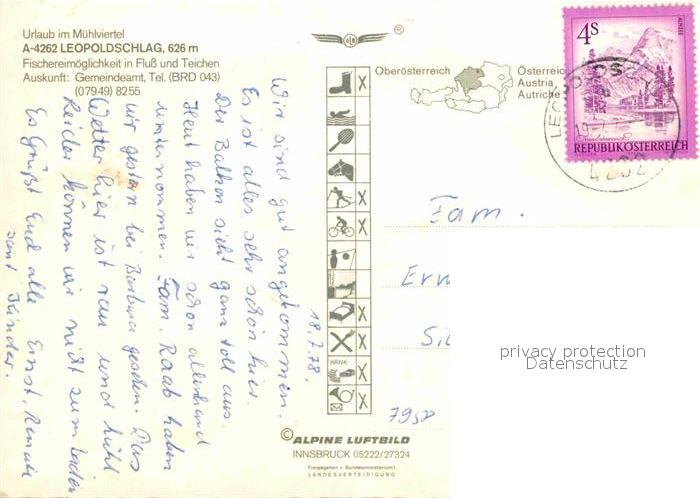 Urlaub im Mühlviertel
A-4262 LEOPOLDSCHLAG, 626 m
Fischereimöglichkeit in Fluß und Teichen
Auskunft: Gemeindeamt, Tel. (BRD 043)
(07949) 8255
ALB
®
Oberösterreich
Österreic
Austria
Autriche
4S
ALMSEE
REPUBLIK ÖSTERREICH
LEOPOLDS
4262
18.7.78.
Wir sind gut angekommen.
Es ist alles sehr schön hier.
Der Balkon sieht ganz toll aus.
Heut haben wir schon allerhand
unternommen. Fam. Raab haben
wir gestern bei Barbara gesehen. Das
Wetter hier ist rau und kühl
leider können wir nicht zum baden
Es Grüßt Euch alle Ernst, Renate
samt Kinder.
Fam.
Erw
Si
BRNK
© ALPINE LUFTBILD
INNSBRUCK 05222/27324
Freigegeben v. Bundesministerium f.
LANDESVERTEIDIGUNG
privacy protection
Datenschutz